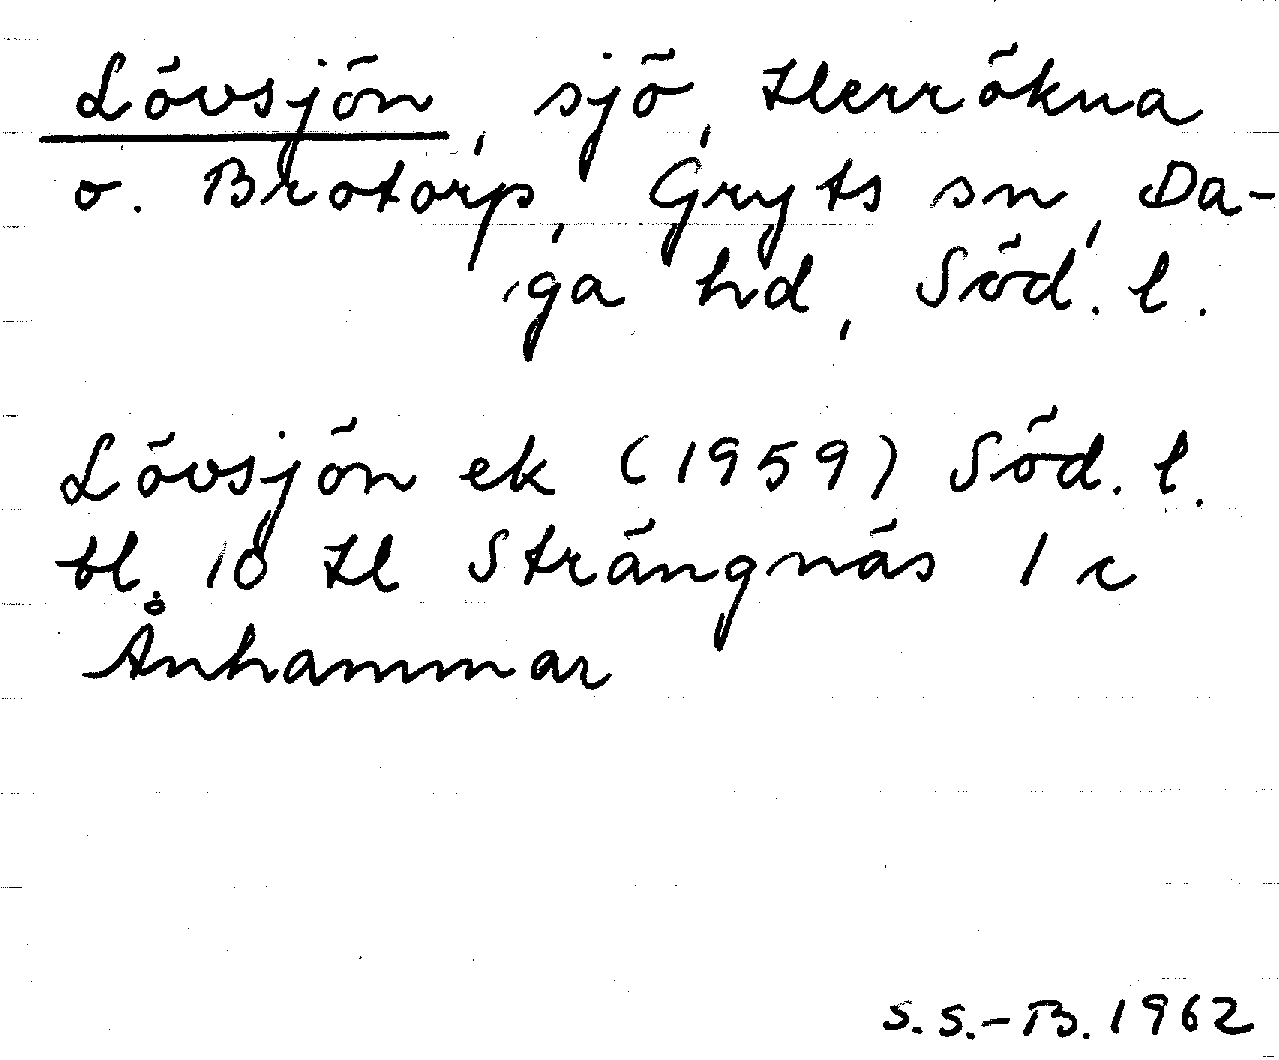 Lövsjön, sjö, Herrökna
o. Brotorp, Gryts sn, Da-
ga hd, Söd. l.
Lövsjön ek (1959) Söd. l.
bl. 10 H Strängnäs 1 c
Ånhammar
S.S.-B. 1962